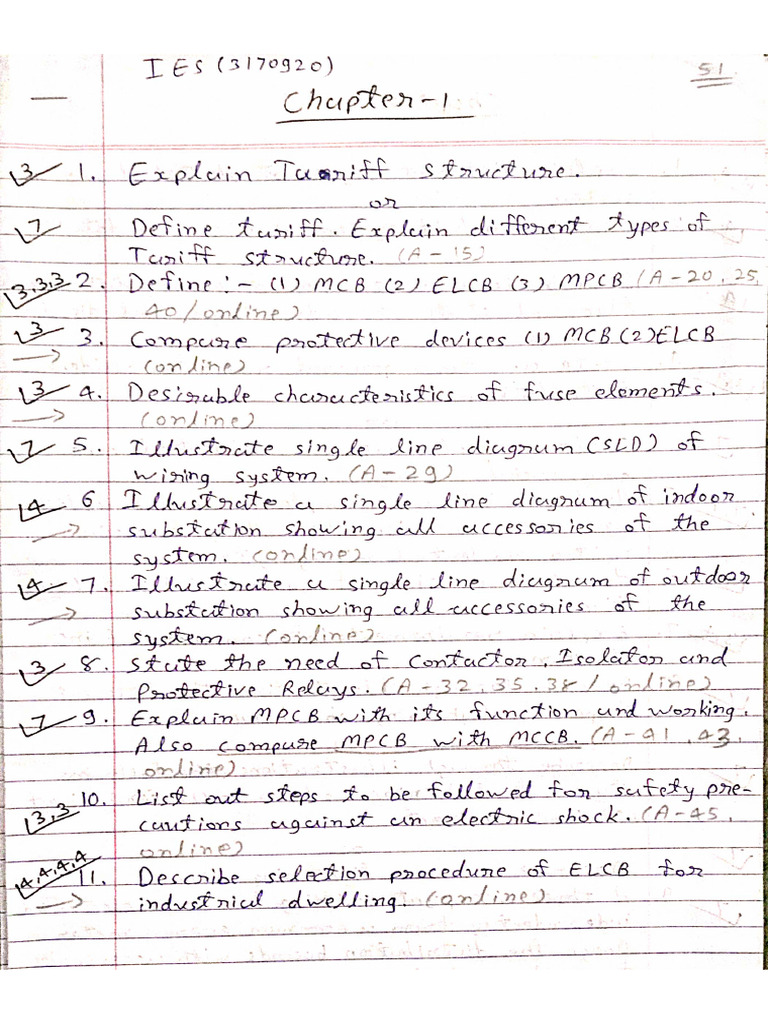 IES (3170920)
51
Chapter-1
3 1. Explain Tariff structure.
or
7 Define tariff. Explain different types of
Tariff structure. (A-15)
3,3,3 2. Define :- (1) MCB (2) ELCB (3) MPCB (A-20, 25,
40/online)
3 3. Compare protective devices (1) MCB (2) ELCB
(online)
3 4. Desirable characteristics of fuse elements.
(online)
7 5. Illustrate single line diagram (SLD) of
wiring system. (A-29)
4 6 Illustrate a single line diagram of indoor
substation showing all accessories of the
system. (online)
4 7. Illustrate a single line diagram of outdoor
substation showing all accessories of the
system. (online)
3 8. State the need of Contactor, Isolator and
Protective Relays. (A-32, 35, 38/online)
7 9. Explain MPCB with its function and working.
Also compare MPCB with MCCB. (A-41, 43,
online)
3,3 10. List out steps to be followed for safety pre-
cautions against an electric shock. (A-45,
online)
4,4,4,4 11. Describe selection procedure of ELCB for
industrial dwelling. (online)